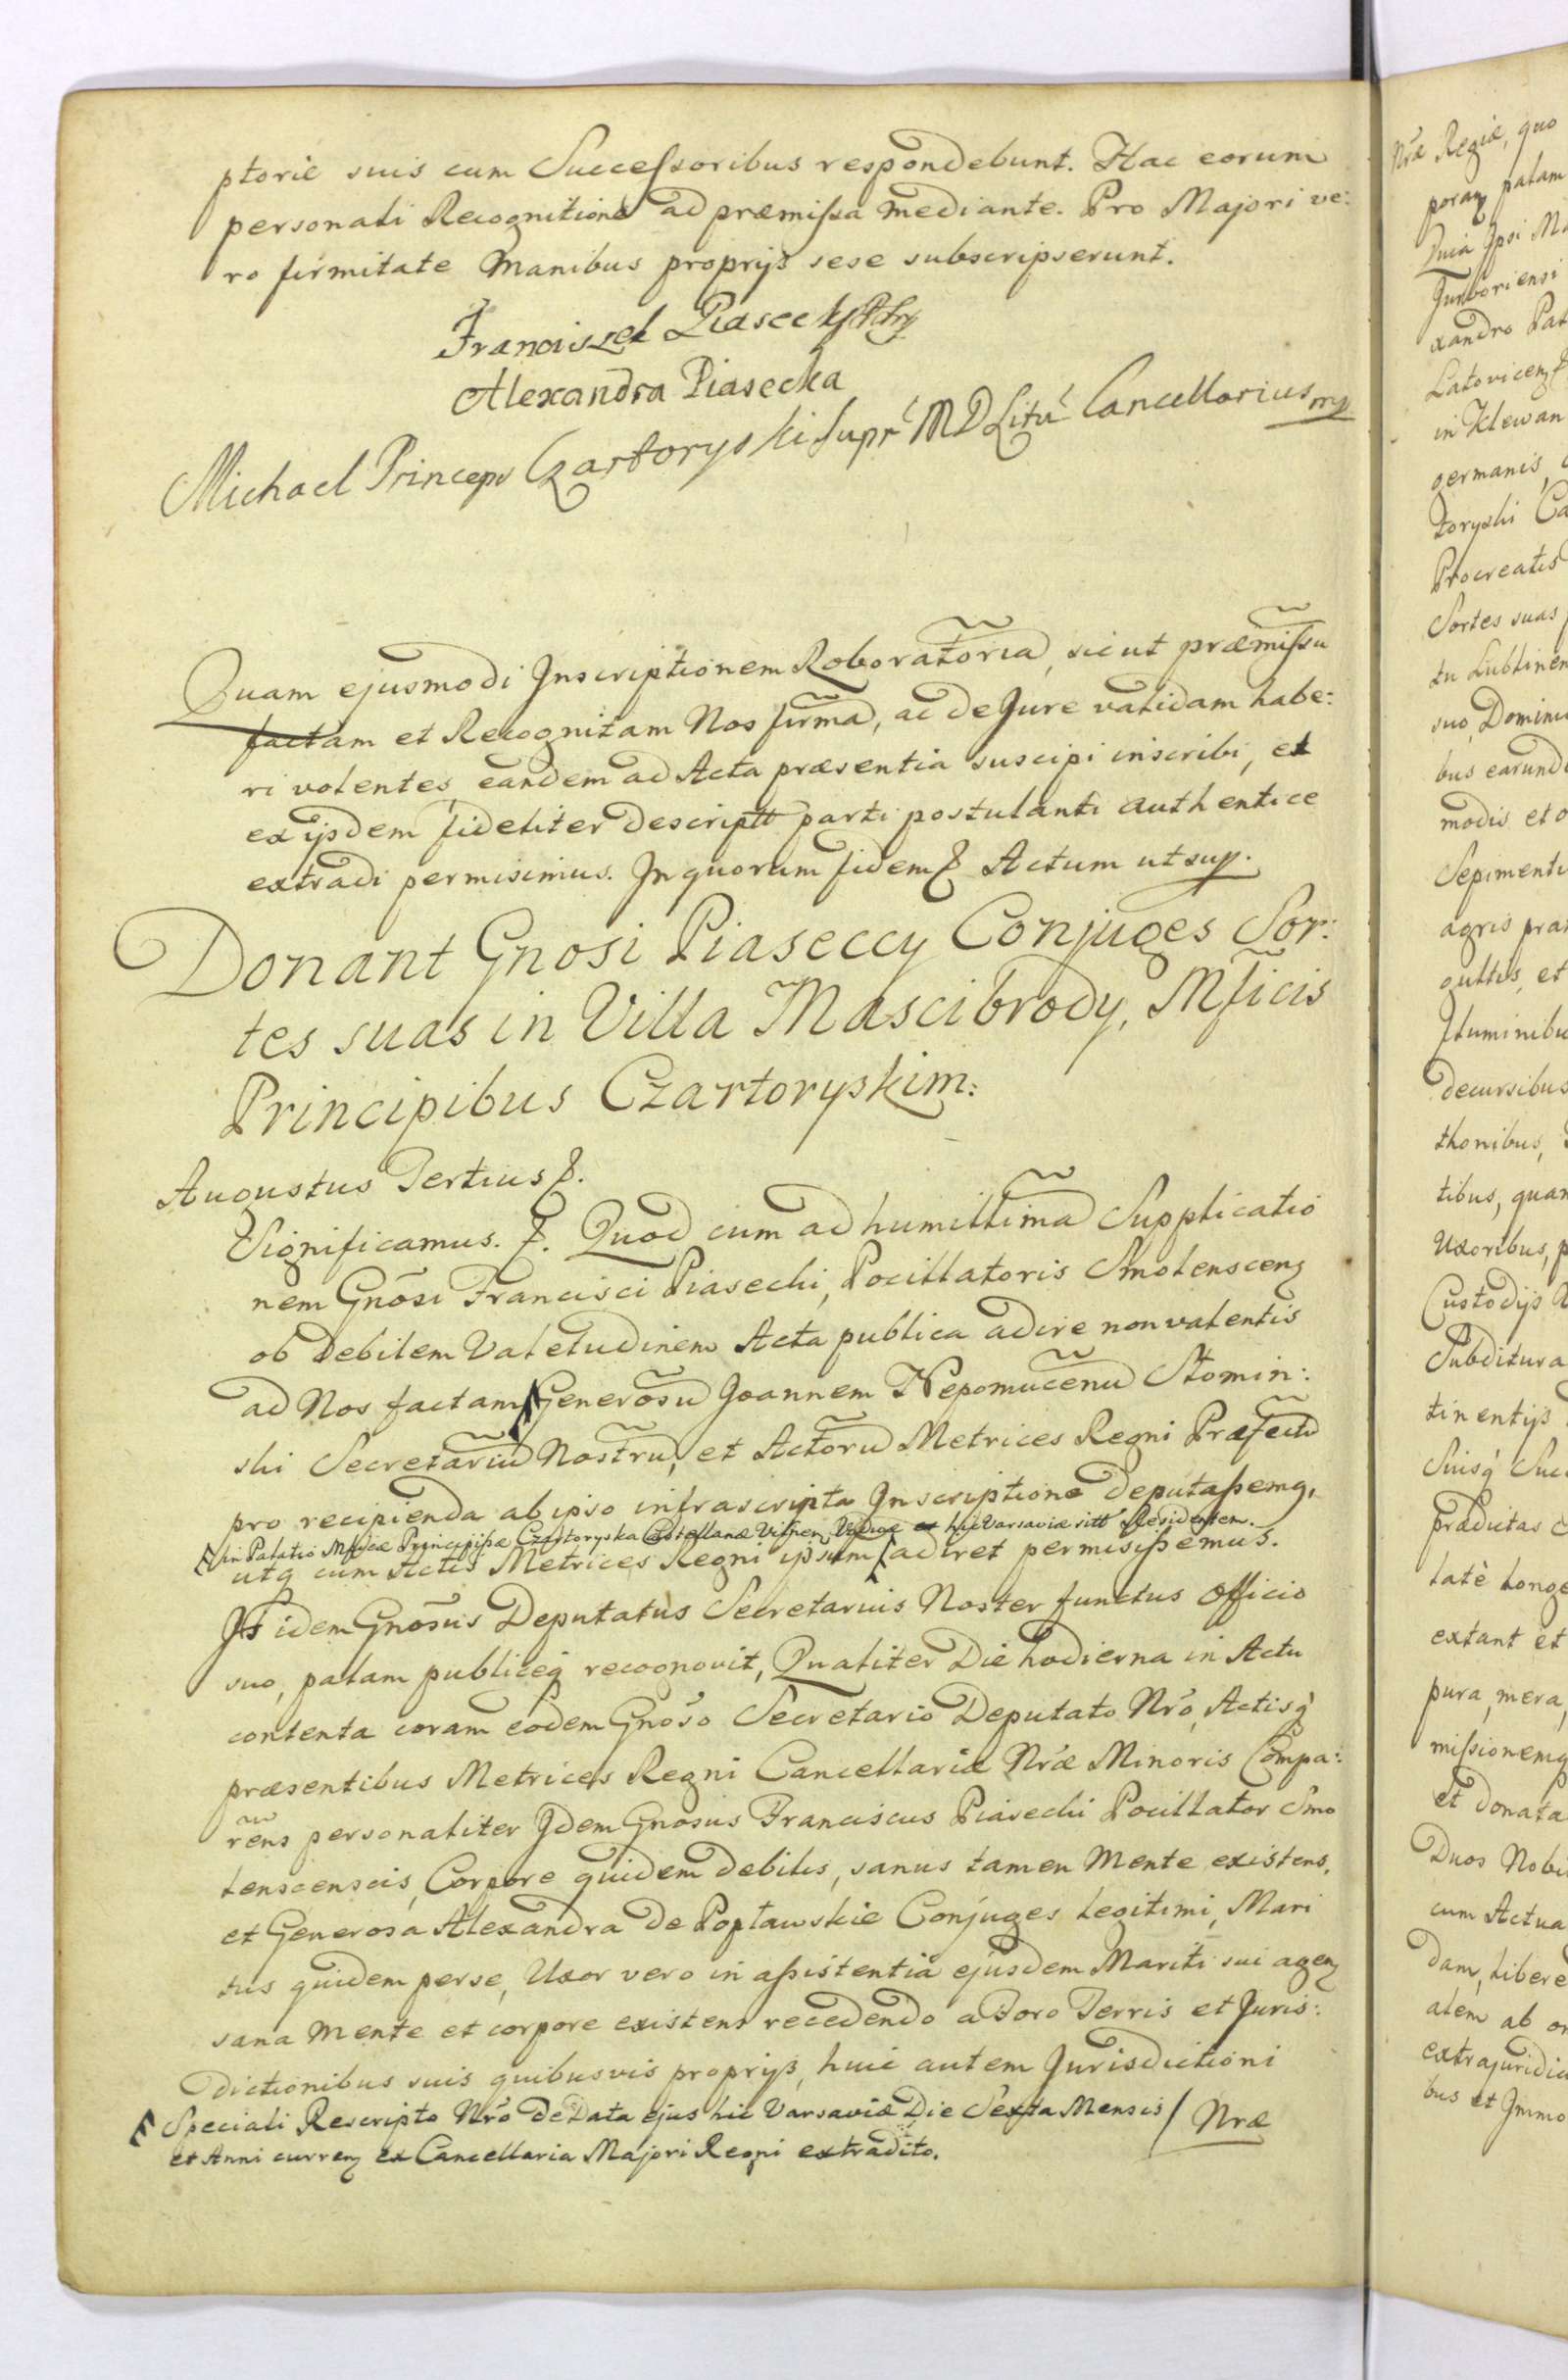 ptorie suis cum Successoribus respondebunt. Hac eorum
personali Recognitione ad præmissa mediante. Pro Majori ve:
ro firmitate Manibus proprijs sese subscripserunt.
Franciszek Piasecki
Alexandra Piasecka
Michael Princeps Czartoryski Supr MDLitu Cancellarius mp
Quam ejusmodi Inscriptionem Roboratoria͂, sicut præmissu͂
factam et Recognitam Nos firma͂, ac de Jure validam habe:
ri volentes eandem ad Acta præsentia suscipi inscribi, et
ex ijsdem fideliter descriptt parti postulanti authentice
extradi permisimus. In quorum fidem Actum ut sup.
Donant Gnosi Piaseccy Conjuges Sor:
tes suas in Villa Mascibrody, Mficis
Principibus Czartoryskim:
Augustus Tertius
Significamus. Quod cum ad humillima͂ Supplicatio
nem Gno͂si Francisci Piasecki, Pocillatoris Smolenscen
ob debilem Valetudinem Acta publica adire non valentis
ad Nos factam Generosu͂ Joannem Nepomucenu͂ Stomin:
ski Secretariu͂ Nostru͂, et Actoru͂ Metrices Regni Præfectu͂
pro recipienda ab ipso infrascripta Inscriptione deputassemq,
in Palatio Mficæ Principissæ Czartoryska Castellanæ Vilnen, Viduæ hic Varsaviæ sitt Residentem.
utq cum Actis Metrices Regni ipsum adiret permisissemus.
Is idem Gnosus Deputatus Secretarius Noster functus Officio
suo, palam publiceq recognovit, Qualiter Die hodierna in Actu
contenta coram eodem Gnoso Secretario Deputato Nro, Actisq
præsentibus Metrices Regni Cancellariæ Nræ Minoris Compa:
re͂ns personaliter Idem Gnosus Franciscus Piasecki Pocillator Smo
lenscensis, Corpore quidem debilis, sanus tamen Mente existens,
et Generosa Alexandra de Popławskie Conjuges legitimi, Mari
tus quidem per se, Uxor vero in assistentia ejusdem Mariti sui agen
sana Mente et corpore existens recedendo a Foro Terris et Juris:
dictionibus suis quibusvis proprijs, huic autem Jurisdictioni
Speciali Rescripto Nro de Data ejus hic Varsaviæ Die Sexta Mensis / Nræ
et Anni curren ex Cancellaria Majori Regni extradito.
Nræ Regiæ, quo
palam
Quia Ipsi
xandro
in Klewan
germanis,
toryski
Procreatis
Sortes suas
tu Lublinen
suo, Domini
bus earund
modis et
Sepimenti
agris
et
fluminibu
decursibus
thonibus,
tibus, quam
Uxoribus,
Custodijs
Subditura
tinentijs
Suisq Suc
prædictas
late longe
extant et
pura, mera,
missionemq
et donata
Duos Nobi
cum Actua
dam, libere
alem ab
extrajuridic
bus et Immo